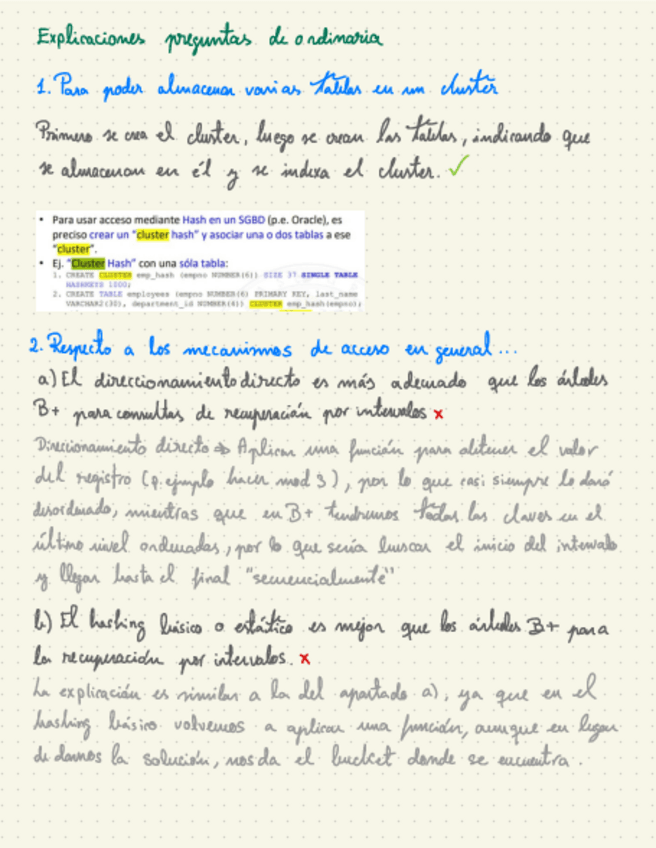 Explicaciones preguntas de ordinaria
1. Para poder almacenar varias tablas en un cluster
Primero se crea el cluster, luego se crean las tablas, indicando que
se almacenan en él y se indexa el cluster. ✓
• Para usar acceso mediante Hash en un SGBD (p.e. Oracle), es
preciso crear un "cluster hash" y asociar una o dos tablas a ese
"cluster".
• Ej. "Cluster Hash" con una sóla tabla:
1. CREATE CLUSTER emp_hash (empno NUMBER(6)) SIZE 37 SINGLE TABLE
HASHKEYS 1000;
2. CREATE TABLE employees (empno NUMBER(6) PRIMARY KEY, last_name
VARCHAR2(30), department_id NUMBER(4)) CLUSTER emp_hash(empno);
2. Respecto a los mecanismos de acceso en general...
a) El direccionamiento directo es más adecuado que los árboles
B+ para consultas de recuperación por intervalos x
Direccionamiento directo => Aplicar una función para obtener el valor
del registro (p. ejemplo hacer mod 3), por lo que casi siempre lo dará
desordenado, mientras que en B+ tendremos todas las claves en el
último nivel ordenadas, por lo que sería buscar el inicio del intervalo
y llegar hasta el final "secuencialmente"
b) El hashing básico o estático es mejor que los árboles B+ para
la recuperación por intervalos. x
La explicación es similar a la del apartado a), ya que en el
hashing básico volvemos a aplicar una función, aunque en lugar
de darnos la solución, nos da el bucket donde se encuentra.